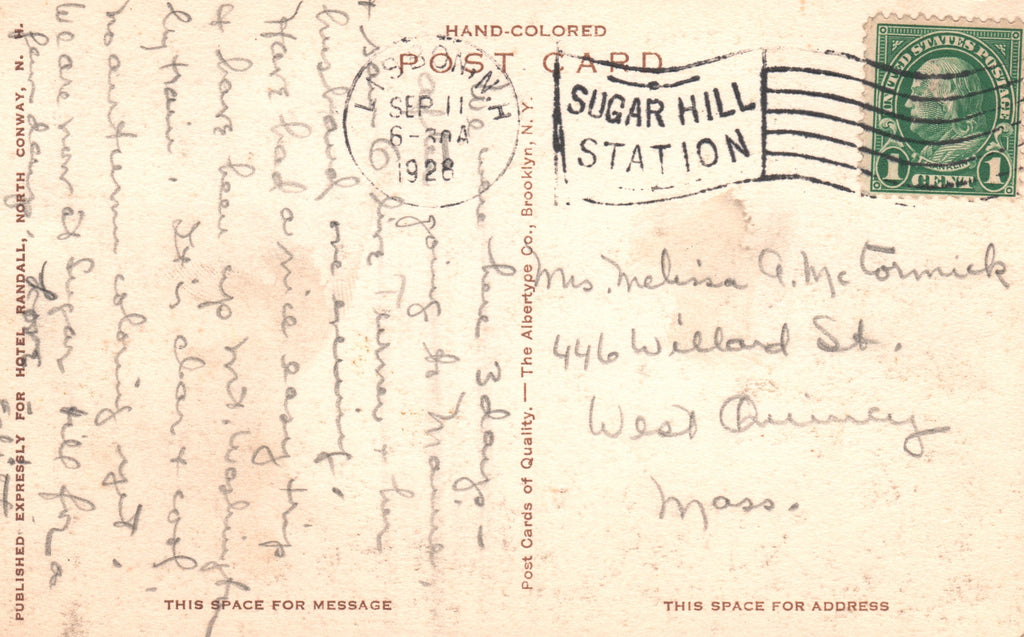 HAND-COLORED
POST CARD
LISBON. N.H
SEP 11
6-30A
1928
SUGAR HILL
STATION
UNITED STATES POSTAGE
FRANKLIN
1 CENT 1
We were here 3 days -
going to Maine,
+ saw Olive Turner + her
husband one evening.
Have had a nice easy trip
+ have been up Mt. Washington
by train. It is clear + cool
no autumn coloring yet.
We are now at Sugar Hill for a
few days.
Love
Edith
Mrs. Melissa A. McCormick
446 Willard St.
West Quincy
Mass.
Post Cards of Quality. — The Albertype Co., Brooklyn, N. Y.
PUBLISHED EXPRESSLY FOR HOTEL RANDALL, NORTH CONWAY, N. H.
THIS SPACE FOR MESSAGE
THIS SPACE FOR ADDRESS